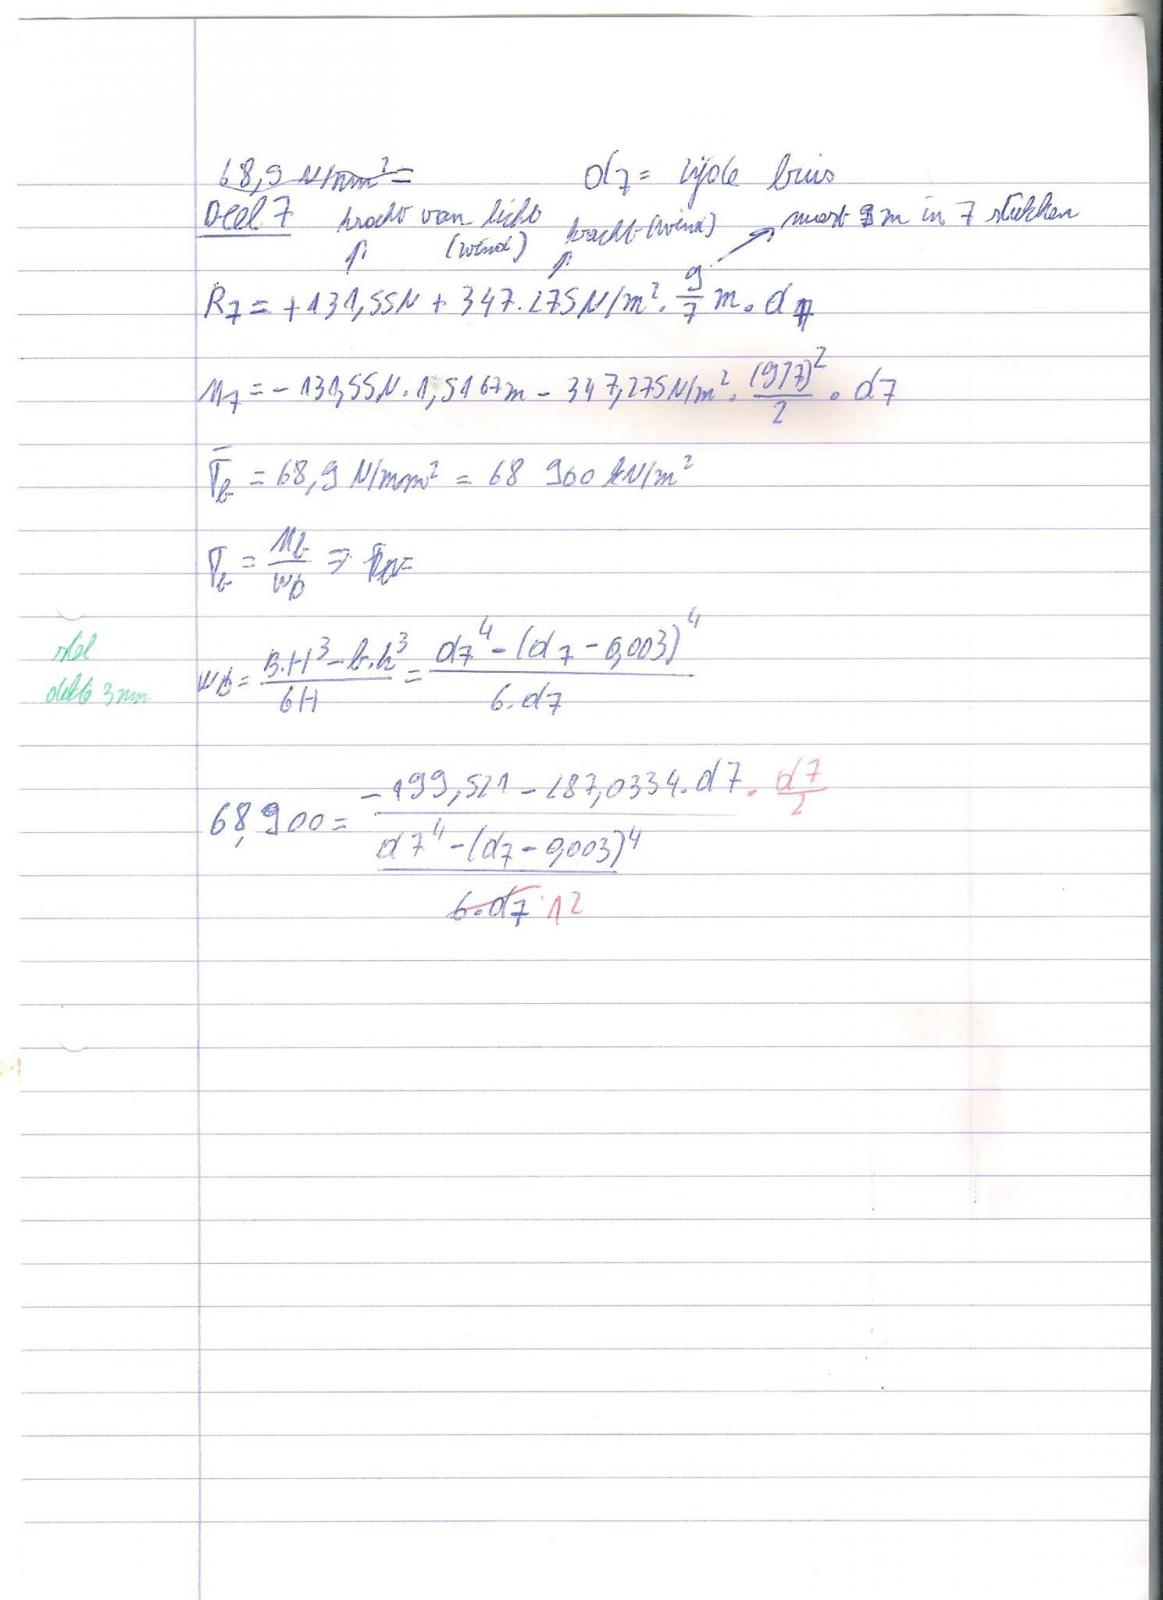 68,9 N/mm² =
d7 = zijde buis
Deel 7 kracht van licht (wind) kracht (wind) mast 9m in 7 stukken
R7 = +131,55N + 347.275N/m² . 9/7 m . d7
M7 = - 131,55N . 1,5167m - 347,275N/m² . (9/7)²/2 . d7
σ̄b = 68,9 N/mm² = 68 900 kN/m²
σb = Mb/wb ⇒
stel
dikte 3mm
wb = (B.H³ - b.h³)/6H = (d7⁴ - (d7 - 0,003)⁴)/6.d7
68,900 = (-199,521 - 287,0334.d7 . d7/2)/((d7⁴ - (d7 - 0,003)⁴)/6.d7 . 12)